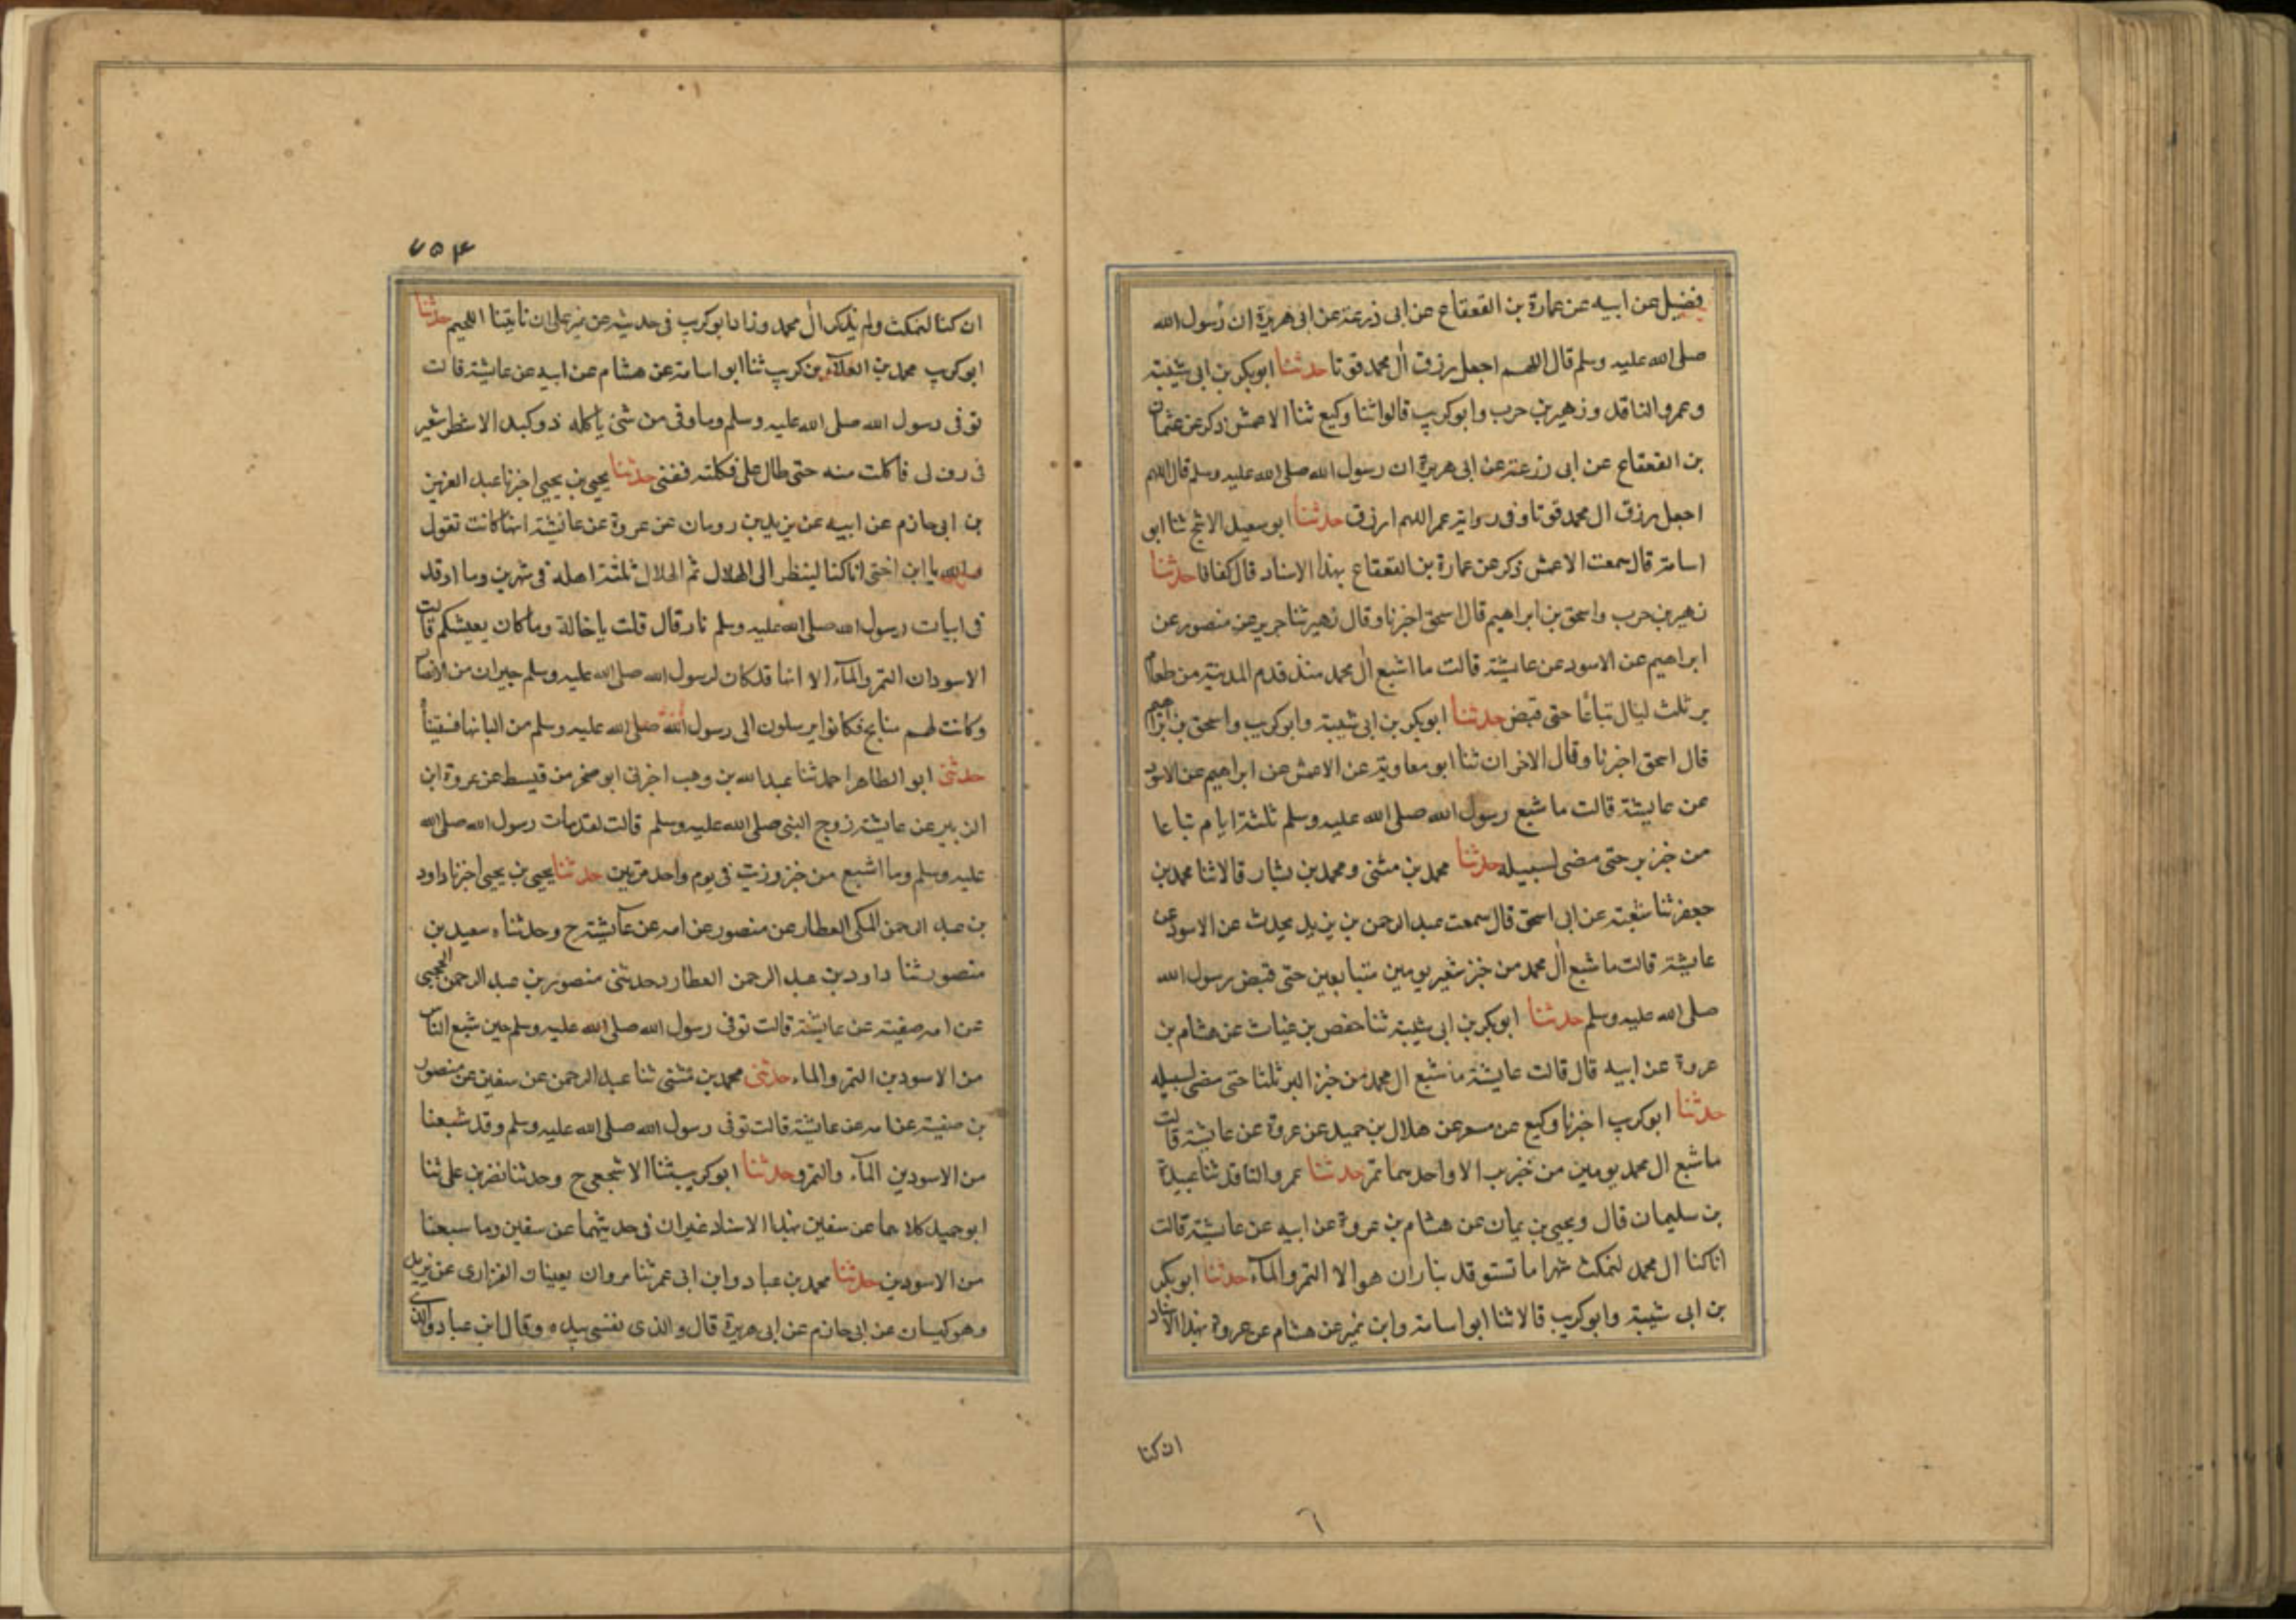 فضيل عن ابيه عن عمارة بن القعقاع عن ابى زرعة عن ابى هريرة ان رسول الله
صلى الله عليه وسلم قال اللهم اجعل رزق آل محمد قوتا حدثنا ابوبكر بن ابى شيبة
وعمرو الناقد وزهير بن حرب وابو كريب قالوا ثنا وكيع ثنا الاعمش ذكر عن عثمان
بن القعقاع عن ابى زرعة عن ابى هريرة ان رسول الله صلى الله عليه وسلم قال اللهم
اجعل رزق ال محمد قوتا وفى رواية عمر اللهم ارزق حدثنا ابو سعيد الاشج ثنا ابو
اسامة قال سمعت الاعمش ذكر عن عمارة بن القعقاع بهذا الاسناد قال كفافا حدثنا
زهير بن حرب واسحق بن ابراهيم قال اسحق اخبرنا وقال زهير ثنا جرير عن منصور عن
ابراهيم عن الاسود عن عايشة قالت ما اشبع آل محمد منذ قدم المدينة من طعام
بر ثلث ليال تباعًا حتى قبض حدثنا ابوبكر بن ابى شيبة وابو كريب واسحق بن ابراهيم
قال اسحق اخبرنا وقال الاخران ثنا ابو معاوية عن الاعمش عن ابراهيم عن الاسود
عن عايشة قالت ما شبع رسول الله صلى الله عليه وسلم ثلثة ايام تباعا
من خبز بر حتى مضى لسبيله حدثنا محمد بن مثنى ومحمد بن بشار قالا ثنا محمد بن
جعفر ثنا شعبة عن ابى اسحق قال سمعت عبد الرحمن بن يزيد يحدث عن الاسود عن
عايشة قالت ما شبع آل محمد من خبز شعير يومين متتابعين حتى قبض رسول الله
صلى الله عليه وسلم حدثنا ابوبكر بن ابى شيبة ثنا حفص بن غياث عن هشام بن
عروة عن ابيه قال قالت عايشة ما شبع ال محمد من خبز البر ثلثا حتى مضى لسبيله
حدثنا ابو كريب اخبرنا وكيع عن مسعر عن هلال بن حميد عن عروة عن عايشة قالت
ما شبع ال محمد يومين من خبز بر الا واحدهما تمر حدثنا عمرو الناقد ثنا عبيدة
بن سليمان قال ويحيى بن يمان عن هشام بن عروة عن ابيه عن عايشة قالت
انا كنا ال محمد لنمكث شهرا ما نستوقد بنار ان هو الا التمر والمآء حدثنا ابوبكر
بن ابى شيبة وابو كريب قالا ثنا ابو اسامة وابن نمير عن هشام عن عروة بهذا الاسناد
ان كنا
٦
٧٥٤
ان كنا لنمكث ولم يذكر آل محمد وزاد ابو كريب فى حديثه عن نمير على ان ناتينا اللحيم حدثنا
ابو كريب محمد بن العلآء بن كريب ثنا ابو اسامة عن هشام عن ابيه عن عايشة قالت
توفى رسول الله صلى الله عليه وسلم وما وفى من شئ ياكله ذو كبد الا شطر شعير
فى رف لى فاكلت منه حتى طال على فكلته ففنى حدثنا يحيى بن يحيى اخبرنا عبد العزيز
بن ابى حازم عن ابيه عن يزيد بن رومان عن عروة عن عايشة انها كانت تقول
والله يا ابن اختى انا كنا لينظر الى الهلال ثم الهلال ثلثة اهله فى شهرين وما اوقد
فى ابيات رسول الله صلى الله عليه وسلم نار قال قلت يا خالة وما كان يعيشكم قالت
الاسودان التمر والمآء الا انها قد كان لرسول الله صلى الله عليه وسلم جيران من الانصار
وكانت لهم منايح فكانوا يرسلون الى رسول الله صلى الله عليه وسلم من البانها فسقيناه
حدثنى ابو الطاهر احمد ثنا عبد الله بن وهب اخبرنى ابو صخر من قسيط عن عروة ابن
الزبير عن عايشة زوج النبى صلى الله عليه وسلم قالت لقد مات رسول الله صلى الله
عليه وسلم وما اشبع من خبز وزيت فى يوم واحد مرتين حدثنا يحيى بن يحيى اخبرنا داود
بن عبد الرحمن المكى العطار عن منصور عن امه عن عآيشة ح وحدثناه سعيد بن
منصور ثنا داود بن عبد الرحمن العطار حدثنى منصور بن عبد الرحمن الحجبى
عن امه صفية عن عايشة قالت توفى رسول الله صلى الله عليه وسلم حين شبع الناس
من الاسودين التمر والماء حدثنى محمد بن مثنى ثنا عبد الرحمن عن سفين عن منصور
بن صفية عن امه عن عايشة قالت توفى رسول الله صلى الله عليه وسلم وقد شبعنا
من الاسودين المآء والتمر وحدثنا ابو كريب ثنا الاشجعى ح وحدثنا نصر بن على ثنا
ابو حميد كلاهما عن سفين بهذا الاسناد غير ان فى حديثهما عن سفين وما سبعنا
من الاسودين حدثنا محمد بن عباد وابن ابى عمر ثنا مروان يعنيان الفزارى عن يزيد
وهو كيسان عن ابى حازم عن ابى هريرة قال والذى نفسى بيده وقال ابن عباد والذى